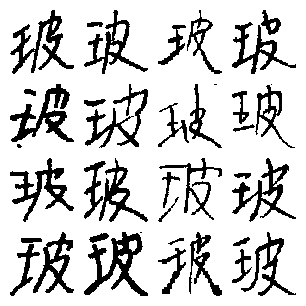 玻玻玻玻
玻玻玻玻
玻玻玻玻
玻玻玻玻